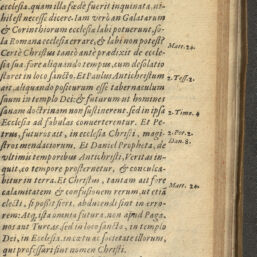 ecclesia, quam illa fœde fuerit inquinata, ni-
hil est necesse dicere. Iam verò an Galatarum
& Corinthiorum ecclesiæ labi potuerunt, so-
la Romana ecclesia errare, & labi non potest?
Certè Christus tantò antè prædixit de eccle- Matt. 24.
sia sua, fore aliquando tempus, cum desolatio
staret in loco sancto. Et Paulus Antichristum 2. Tess. 2.
ait, aliquando positurum esse tabernaculum
suum in templo Dei: & futurum ut homines
sanam doctrinam non sustinerent, sed in ipsa 2. Timo. 4
Ecclesia ad fabulas converterentur. Et Pe-
trus, futuros ait, in ecclesia Christi, magi- 2. Pet. 2.
stros mendaciorum. Et Daniel Propheta, de Dan. 8.
ultimis temporibus Antichristi, Veritas in-
quit, eo tempore prosternetur, & conculca-
bitur in terra. Et Christus, tantam ait fore Matt. 24.
calamitatem & confusionem rerum, ut etiam
electi, si possit fieri, abducendi sint in erro-
rem: Atq, ista omnia futura, non apud Paga-
nos aut Turcas, sed in loco sancto, in templo
Dei, in Ecclesia, in cœtu & societate illorum,
qui profiteri sint nomen Christi.